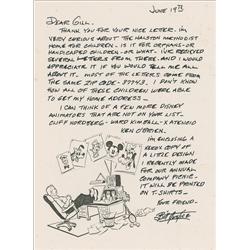 JUNE 19TH
DEAR GILL.
THANK YOU FOR YOUR NICE LETTER. I'M
VERY CURIOUS ABOUT THE HALSTON METHODIST
HOME FOR CHILDREN. IS IT FOR ORPHANS - OR
HANDICAPED CHILDREN - OR WHAT. I'VE RECEIVED
SEVERAL LETTERS FROM THERE. AND I WOULD
APPRECIATE IT IF YOU WOULD TELL ME ALL
ABOUT IT. MOST OF THE LETTERS COME FROM
THE SAME ZIP CODE - 37743. I DON'T KNOW
HOW ALL OF THESE CHILDREN WERE ABLE
TO GET MY HOME ADDRESS -
I CAN THINK OF A FEW MORE DISNEY
ANIMATORS THAT ARE NOT ON YOUR LIST.
CLIFF NORDBERG - WARD KIMBALL - X ATENCIO
KEN O'BRIEN.
I'M ENCLOSING A
XEROX COPY OF
A LITTLE DESIGN
I RECENTLY MADE
FOR OUR ANNUAL
COMPANY PICNIC -
IT WILL BE PRINTED
ON T-SHIRTS -
YOUR FRIEND -